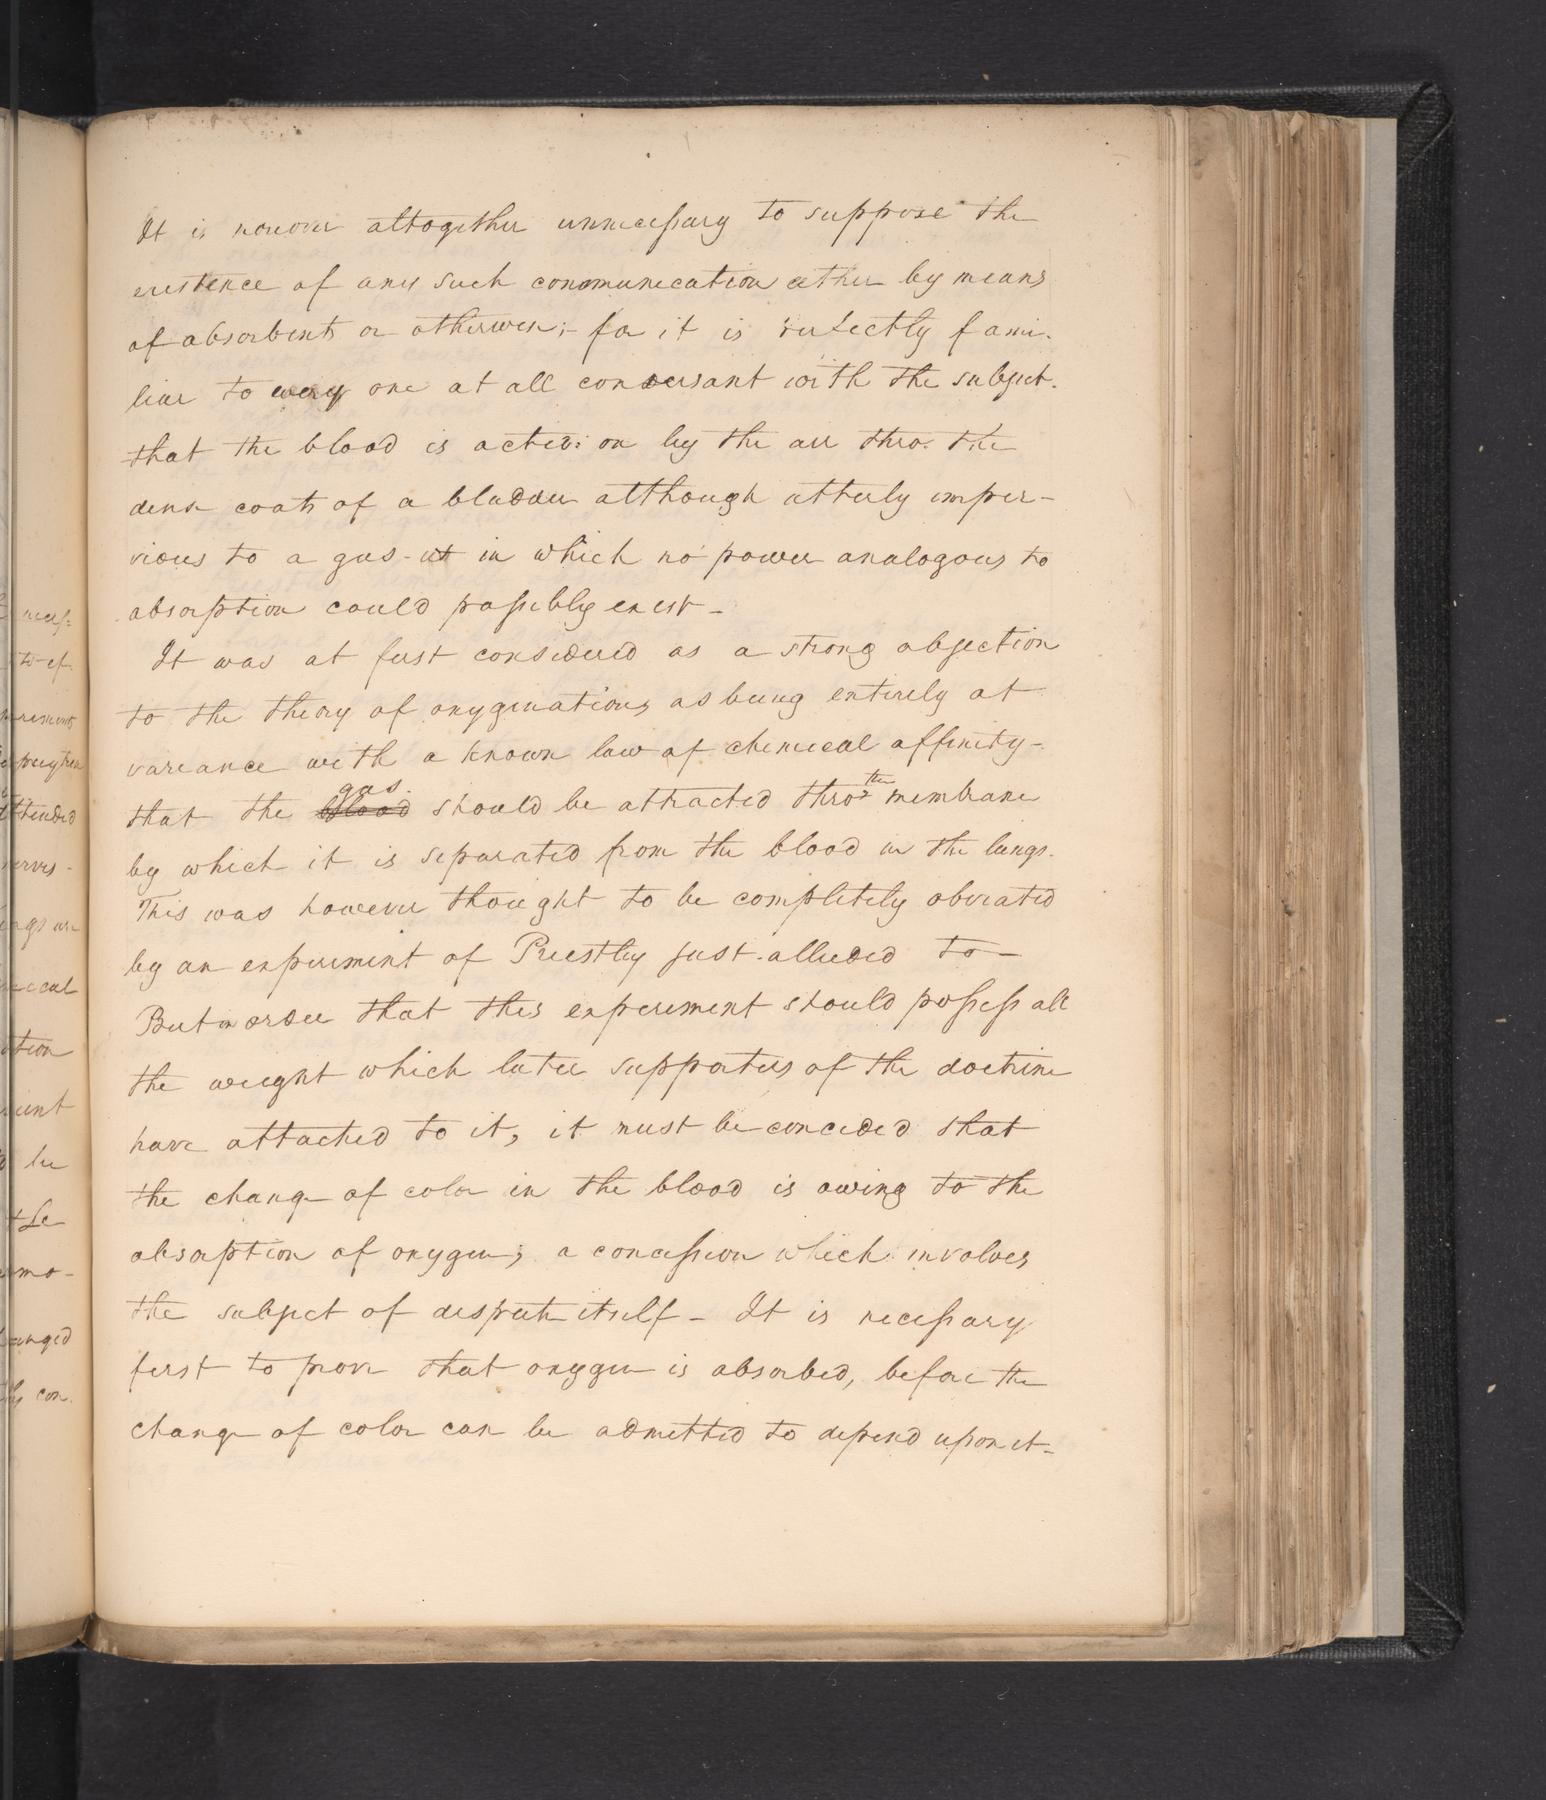 It is moreover altogether unnecessary to suppose the
existence of any such communication either by means
of absorbents or otherwise;- for it is perfectly fami-
liar to every one at all conversant with the subject.
that the blood is acted on by the air thro. the
dense coats of a bladder although utterly imper-
vious to a gas - in which no power analogous to
absorption could possibly exist -
It was at first considered as a strong objection
to the theory of oxygination, as being entirely at
variance with a known law of chemical affinity -
that the blood gas. should be attracted thro' the membrane
by which it is separated from the blood in the lungs.
This was however thought to be completely obviated
by an experiment of Priestley just alluded to -
But in order that this experiment should possess all
the weight which later supporters of the doctrine
have attached to it, it must be conceded that
the change of color in the blood is owing to the
absorption of oxygen; a concession which involves
the subject of dispute itself - It is necessary
first to prove that oxygen is absorbed, before the
change of color can be admitted to depend upon it -